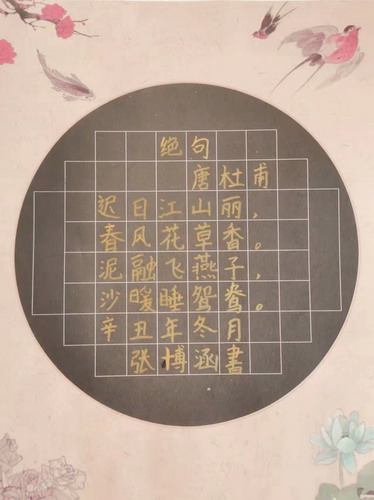 绝句
唐杜甫
迟日江山丽，
春风花草香。
泥融飞燕子，
沙暖睡鸳鸯。
辛丑年冬月
张博涵書